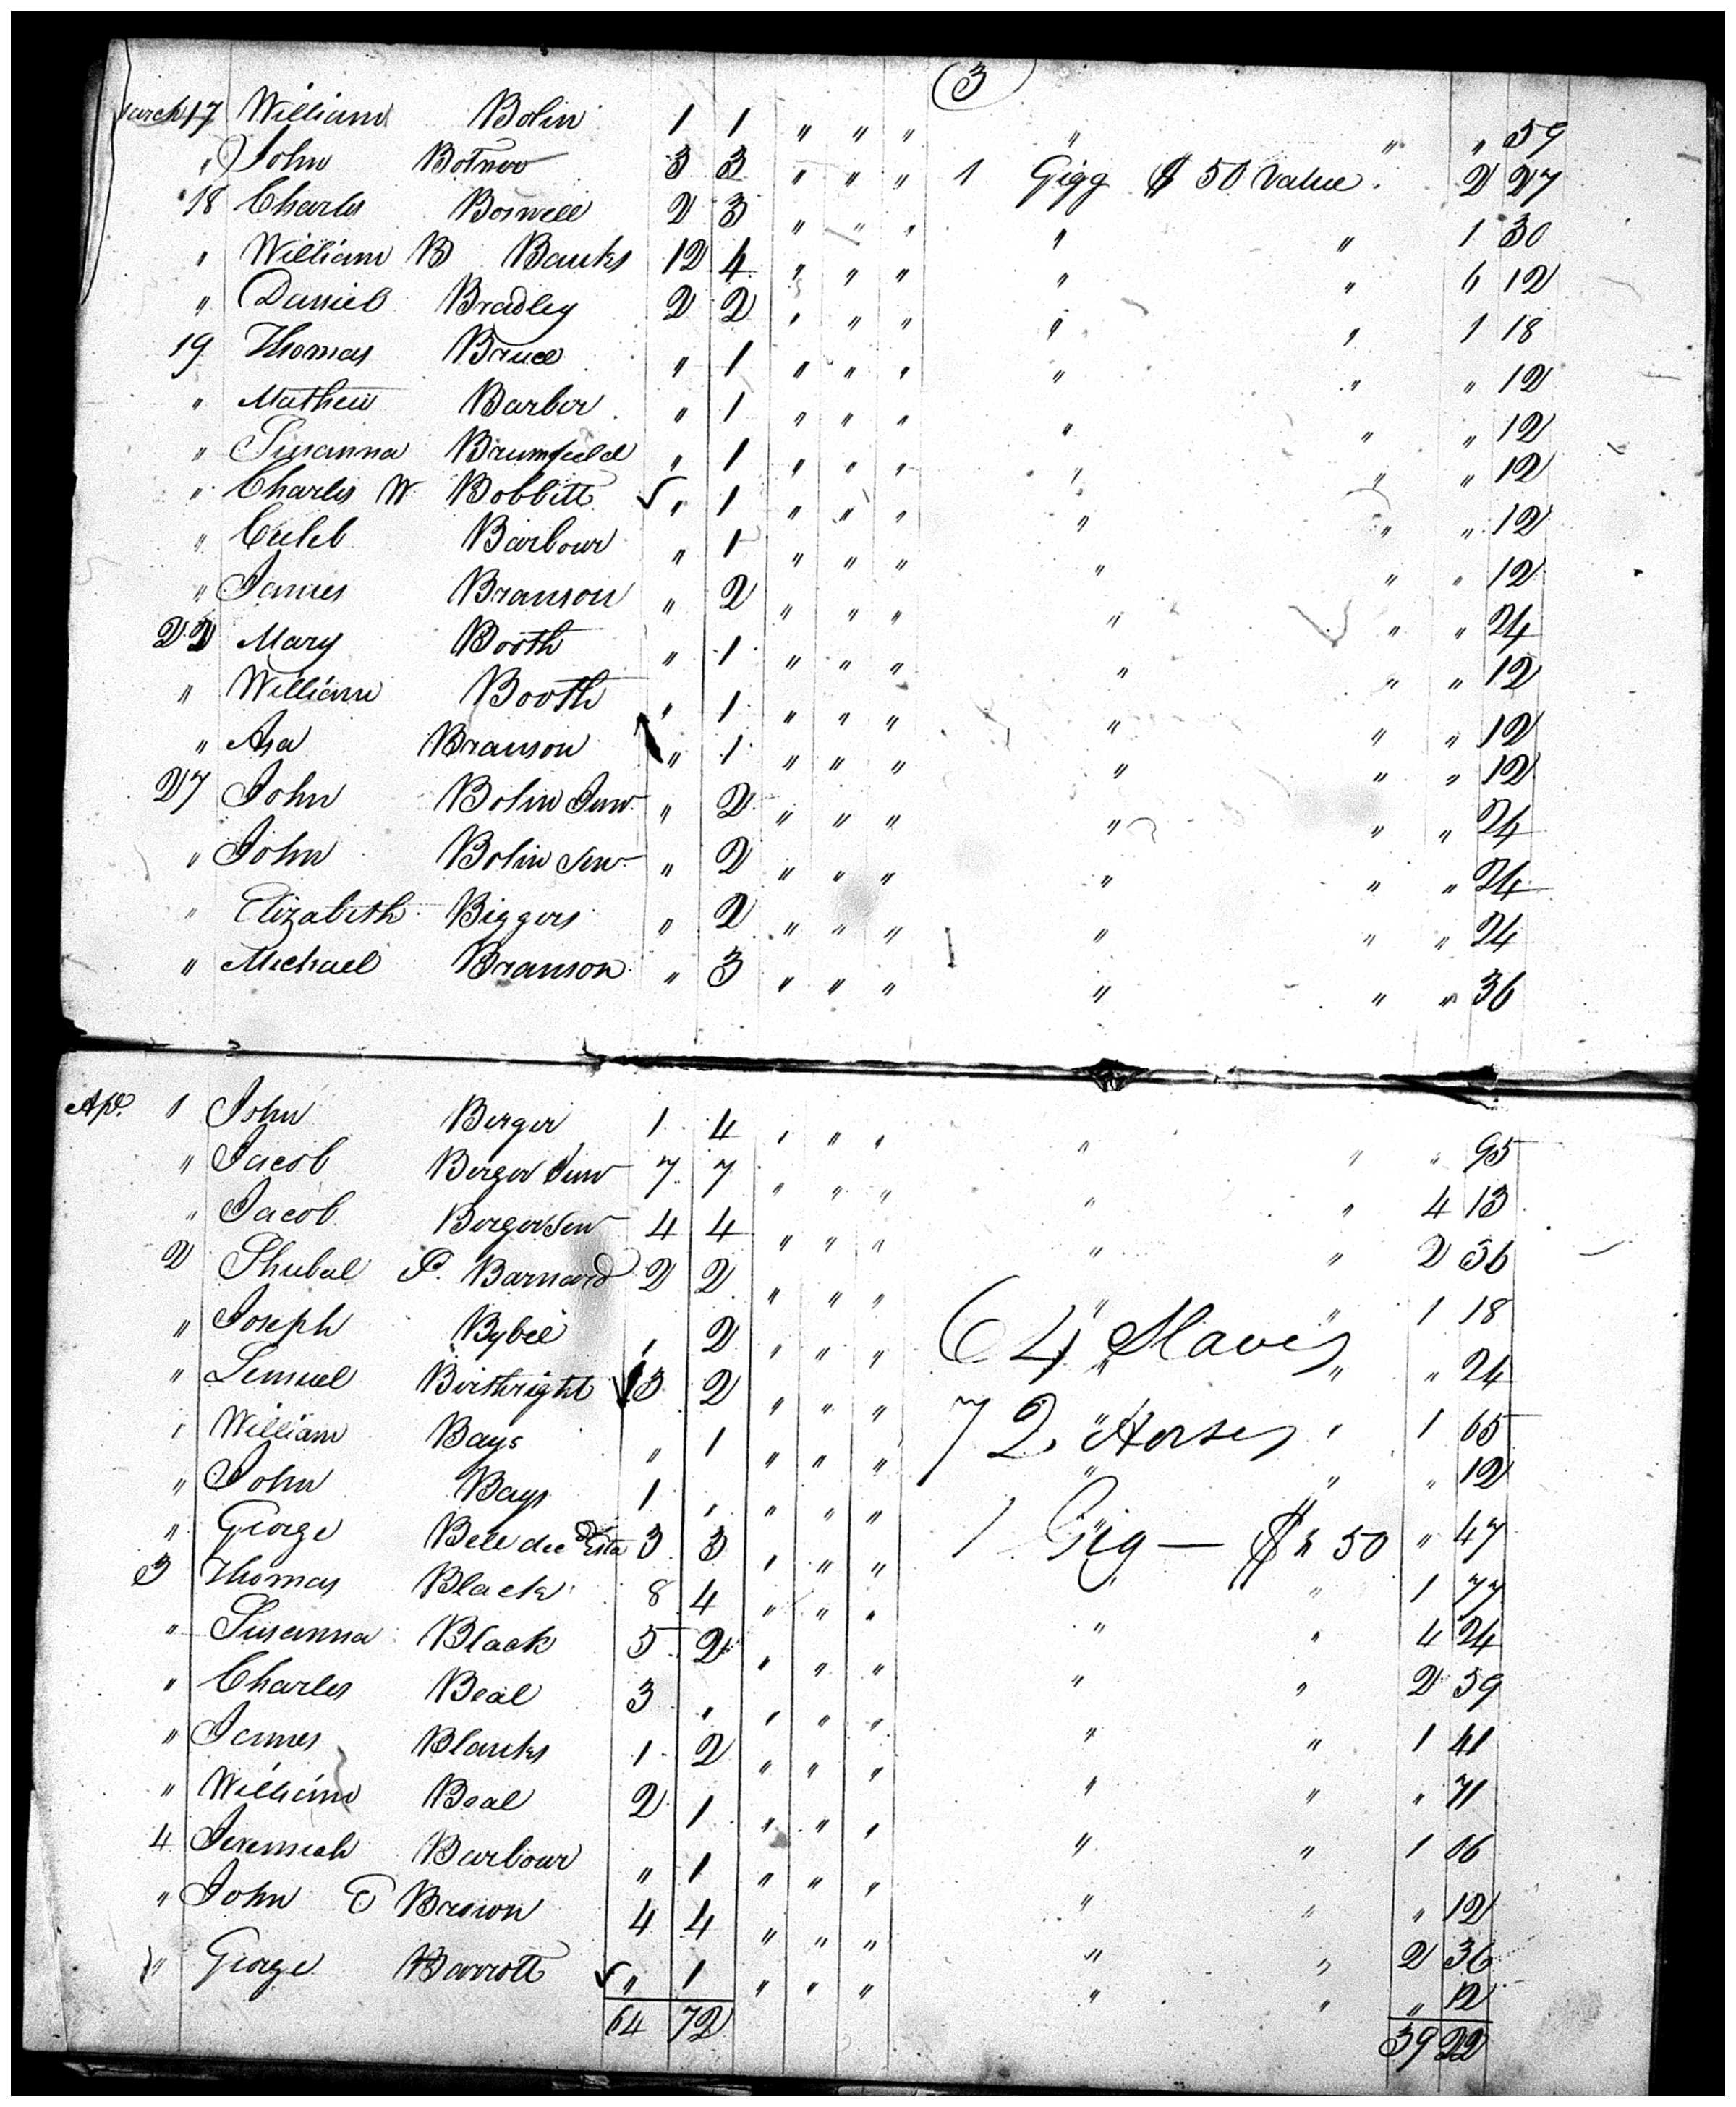 (3)
March 17 William Bolin 1 1 " " " " " " 59
" John Botnor 3 3 " " " 1 Gigg $ 50 Value " 2 27
18 Charles Boswell 2 3 " " " " " 1 30
" William B Banks 12 4 " " " " " 6 12
" Daniel Bradley 2 2 " " " " " 1 18
19 Thomas Bruce " 1 " " " " " " 12
" Mathew Barber " 1 " " " " " " 12
" Susanna Brumfield " 1 " " " " " " 12
" Charles W Bobbitt ✓ " 1 " " " " " " 12
" Caleb Barbour " 1 " " " " " " 12
" James Branson " 2 " " " " " " 24
22 Mary Booth " 1 " " " " " " 12
" William Booth " 1 " " " " " " 12
" Asa Branson " 1 " " " " " " 12
27 John Bolin Junr " 2 " " " " " " 24
" John Bolin Senr " 2 " " " " " " 24
" Elizabeth Biggers " 2 " " " " " " 24
" Michael Branson " 3 " " " " " " 36
Apl. 1 John Berger 1 4 " " " " " " 95
" Jacob Berger Junr 7 7 " " " " " 4 13
" Jacob Berger Senr 4 4 " " " " " 2 36
2 Shubal P. Barnard 2 2 " " " " " 1 18
64 Slaves
" Joseph Bybee " 2 " " " " " " 24
" Lemuel Birthright ✓ 3 2 " " " " " 1 65
72 Horses
" William Bays " 1 " " " " " " 12
" John Bays 1 " " " " " " " 47
1 Gig — $ 50
" George Bell decd Esta 3 3 " " " " " 1 77
3 Thomas Black 8 4 " " " " " 4 24
" Susanna Black 5 2 " " " " " 2 59
" Charles Beal 3 " " " " " " 1 41
" James Blanks 1 2 " " " " " " 71
" William Beal 2 1 " " " " " 1 06
4 Jeremiah Barbour " 1 " " " " " " 12
" John E Brown 4 4 " " " " " 2 36
" George Barrott ✓ " 1 " " " " " " 12
64 72 39 22